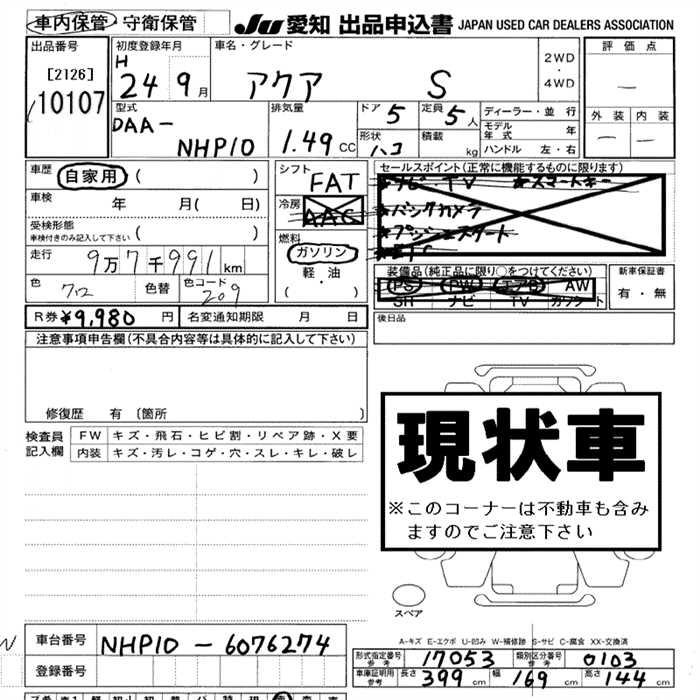 車内保管・守衛保管
JU 愛知 出品申込書 JAPAN USED CAR DEALERS ASSOCIATION
出品番号
[2126]
10107
初度登録年月
H
24 9月
車名・グレード
アクア S
2WD
・
4WD
評価点
—
外装 内装
— —
型式
DAA-
NHP10
排気量
1.49 CC
ドア 5
定員 5人
形状 ハコ
積載 kg
ディーラー・並行
モデル年式 年
ハンドル 左・右
車歴 自家用 ( )
車検 年 月( 日)
受検形態
車検付きのみ記入して下さい ( )
走行 9万7千991km
色 クロ 色替 色コード 209
シフト
FAT
冷房
AAC
燃料
ガソリン
・
軽・油
( )
セールスポイント(正常に機能するものに限ります)
★ナビ・TV ★スマートキー
★バックカメラ
★プッシュスタート
★ETC
装備品(純正品に限り○をつけてください)
PS PW エアB AW
SH ナビ TV ガソクート
新車保証書
有・無
R券 ¥9,980 円 名変通知期限 月 日
後日品
注意事項申告欄(不具合内容等は具体的に記入して下さい)
修復歴 有 〔箇所 〕
検査員
記入欄
FW キズ・飛石・ヒビ割・リペア跡・X要
内装 キズ・汚レ・コゲ・穴・スレ・キレ・破レ
現状車
※このコーナーは不動車も含み
ますのでご注意下さい
スペア
A-キズ E-エクボ U-凹み W-補修跡 S-サビ C-腐食 XX-交換済
車台番号 NHP10-6076274
登録番号
形式指定番号
参考 17053
類別区分番号
参考 0103
車庫証明用
参考 長さ 399 cm 幅 169 cm 高さ 144 cm